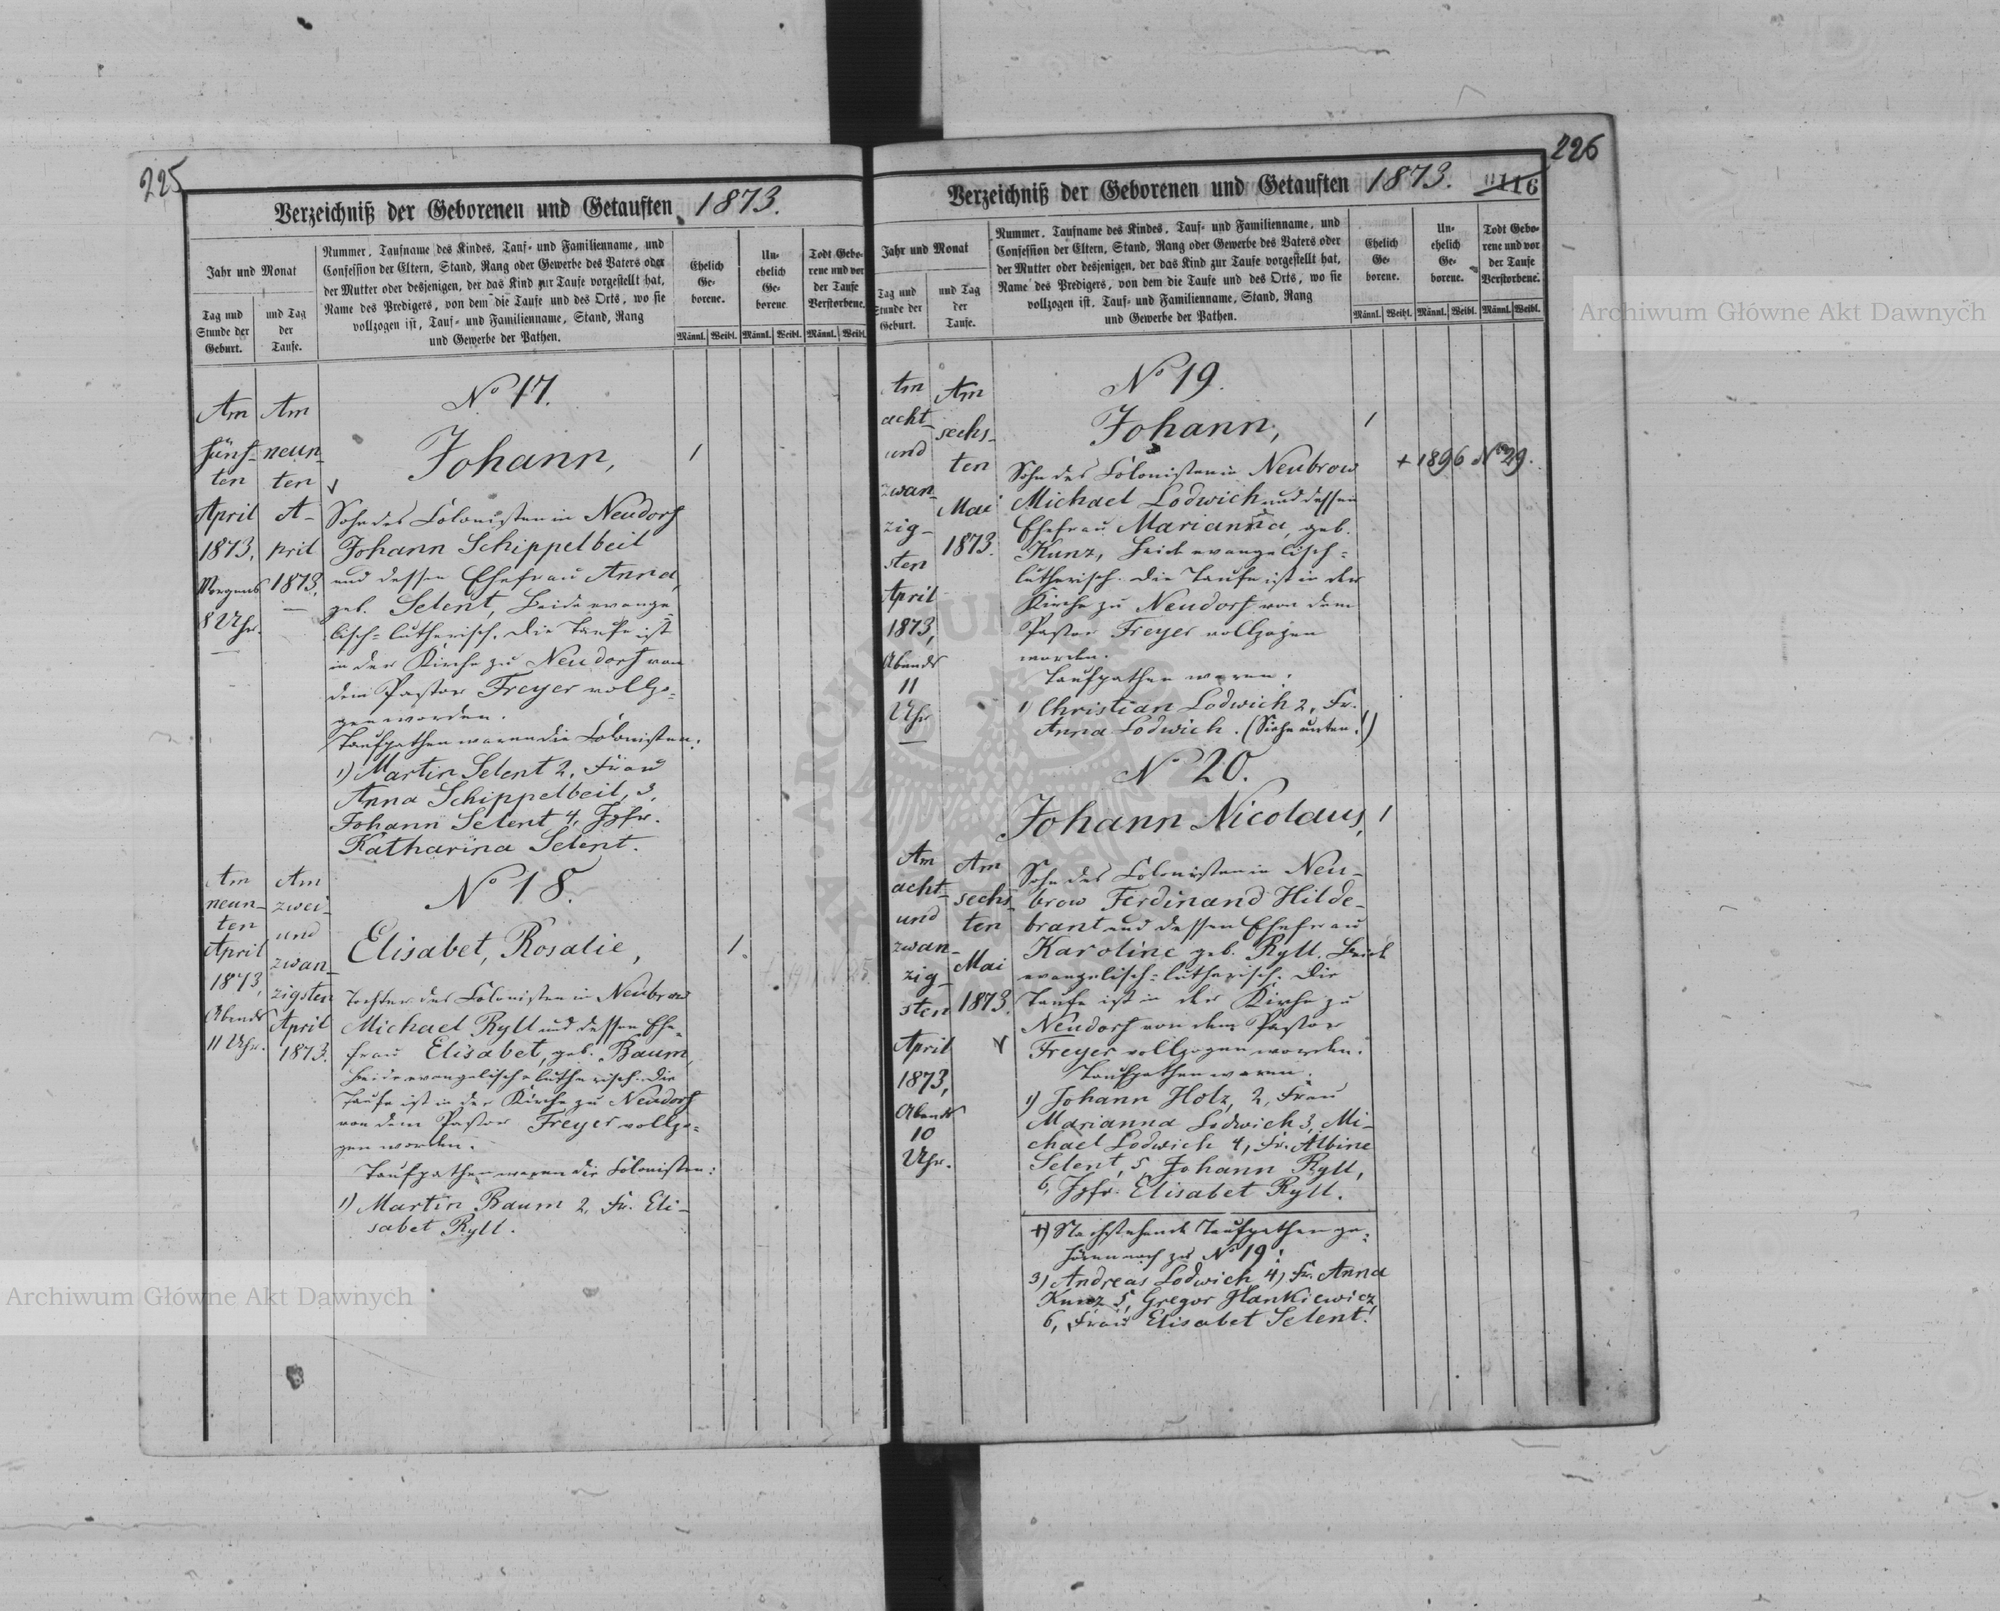 225
Verzeichniß der Geborenen und Getauften 1873.
Jahr und Monat
Tag und
Stunde der
Geburt.
und Tag
der
Taufe.
Nummer. Taufname des Kindes, Tauf- und Familienname, und
Confession der Eltern, Stand, Rang oder Gewerbe des Vaters oder
der Mutter oder desjenigen, der das Kind zur Taufe vorgestellt hat,
Name des Predigers, von dem die Taufe und des Orts, wo sie
vollzogen ist, Tauf- und Familienname, Stand, Rang
und Gewerbe der Pathen.
Ehelich
Ge-
borene.
Un-
ehelich
Ge-
borene
Todt Gebo-
rene und vor
der Taufe
Verstorbene.
Männl. Weibl. Männl. Weibl. Männl. Weibl.
Am
fünf-
ten
April
1873,
Morgens
8 Uhr.
Am
neun-
ten
A-
pril
1873.
No 17.
Johann,
1
Sohn des Colonisten in Neudorf
Johann Schippelbeil
und dessen Ehefrau Anna,
geb. Selent, Beide evange-
lisch-lutherisch. Die Taufe ist
in der Kirche zu Neudorf von
dem Pastor Freyer vollzo-
gen worden.
Taufpathen waren die Colonisten:
1) Martin Selent 2, Frau
Anna Schippelbeil, 3,
Johann Selent 4, Jgfr.
Katharina Selent.
Am
neun-
ten
April
1873,
Abends
11 Uhr.
Am
zwei-
und
zwan-
zigsten
April
1873.
No 18.
Elisabet, Rosalie,
1.
Tochter des Colonisten in Neubrow
Michael Ryll und dessen Ehe-
frau Elisabet, geb. Baum,
Beide evangelisch-lutherisch. Die
Taufe ist in der Kirche zu Neudorf
von dem Pastor Freyer vollzo-
gen worden.
Taufpathen waren die Colonisten:
1) Martin Baum 2, Fr. Eli-
sabet Ryll.
226
Verzeichniß der Geborenen und Getauften 1873.
116
Jahr und Monat
Tag und
Stunde der
Geburt.
und Tag
der
Taufe.
Nummer. Taufname des Kindes, Tauf- und Familienname, und
Confession der Eltern, Stand, Rang oder Gewerbe des Vaters oder
der Mutter oder desjenigen, der das Kind zur Taufe vorgestellt hat,
Name des Predigers, von dem die Taufe und des Orts, wo sie
vollzogen ist, Tauf- und Familienname, Stand, Rang
und Gewerbe der Pathen.
Ehelich
Ge-
borene.
Un-
ehelich
Ge-
borene.
Todt Gebo-
rene und vor
der Taufe
Verstorbene.
Männl. Weibl. Männl. Weibl. Männl. Weibl.
Am
acht-
und
zwan-
zig-
sten
April
1873,
Abends
11
Uhr
Am
sechs-
ten
Mai
1873.
No 19.
Johann,
1
+ 1896 No 29.
Sohn des Colonisten in Neubrow
Michael Lodwich und dessen
Ehefrau Marianna, geb.
Kunz, Beide evangelisch-
lutherisch. Die Taufe ist in der
Kirche zu Neudorf von dem
Pastor Freyer vollzogen
worden.
Taufpathen waren:
1) Christian Lodwich 2, Fr.
Anna Lodwich. (Siehe unten!)
Am
acht-
und
zwan-
zig-
sten
April
1873,
Abends
10
Uhr.
Am
sechs-
ten
Mai
1873.
No 20.
Johann Nicolaus,
1
Sohn des Colonisten in Neu-
brow Ferdinand Hilde-
brant und dessen Ehefrau
Karoline geb. Ryll. Beide
evangelisch-lutherisch. Die
Taufe ist in der Kirche zu
Neudorf von dem Pastor
Freyer vollzogen worden.
Taufpathen waren:
1) Johann Holz, 2, Frau
Marianna Lodwich 3, Mi-
chael Lodwich 4, Fr. Albine
Selent, 5, Johann Ryll,
6, Jgfr. Elisabet Ryll.
+) Nachstehende Taufpathen ge-
hören noch zu No 19:
3) Andreas Lodwich 4) Fr. Anna
Kunz 5, Gregor Hankiewicz
6, Frau Elisabet Selent!
Archiwum Główne Akt Dawnych
Archiwum Główne Akt Dawnych